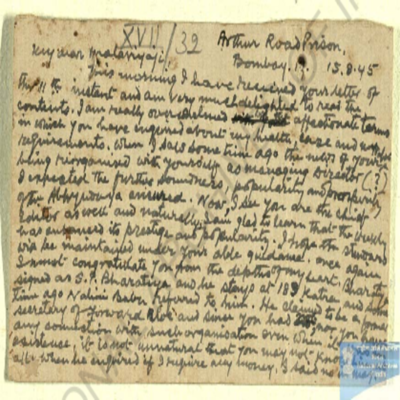 XVII/32
Arthur Road Prison,
My dear Malaviyaji, Bombay. 15.8.45
This morning I have received your letter of
the 11th instant and am very much delighted to read the
contents. I am really overwhelmed affectionate terms
in which you have enquired about my health, ease and
requirements. When I read some time ago the news of your
being reorganised with yourself as managing Director (?)
I expected the further soundness, popularity and prosperity
of the Abhyudaya ensured. Now I see you are the chief
Editor as well and naturally I am glad to learn that the weekly
has enhanced its prestige and popularity. I hope the standard
will be maintained under your able guidance. Once again
I must congratulate you from the depths of my heart. Bharatiya
signed as S.P. Bharatiya and he stays at 189 Katra and some
time ago Nalini Babu referred to him. He claimed to be a
secretary of Forward Bloc and since you had nor you have
any connection with such organisation even when it was in
existence, it is not unnatural that you may not know him
at all. When he enquired if I require any money, I said no in